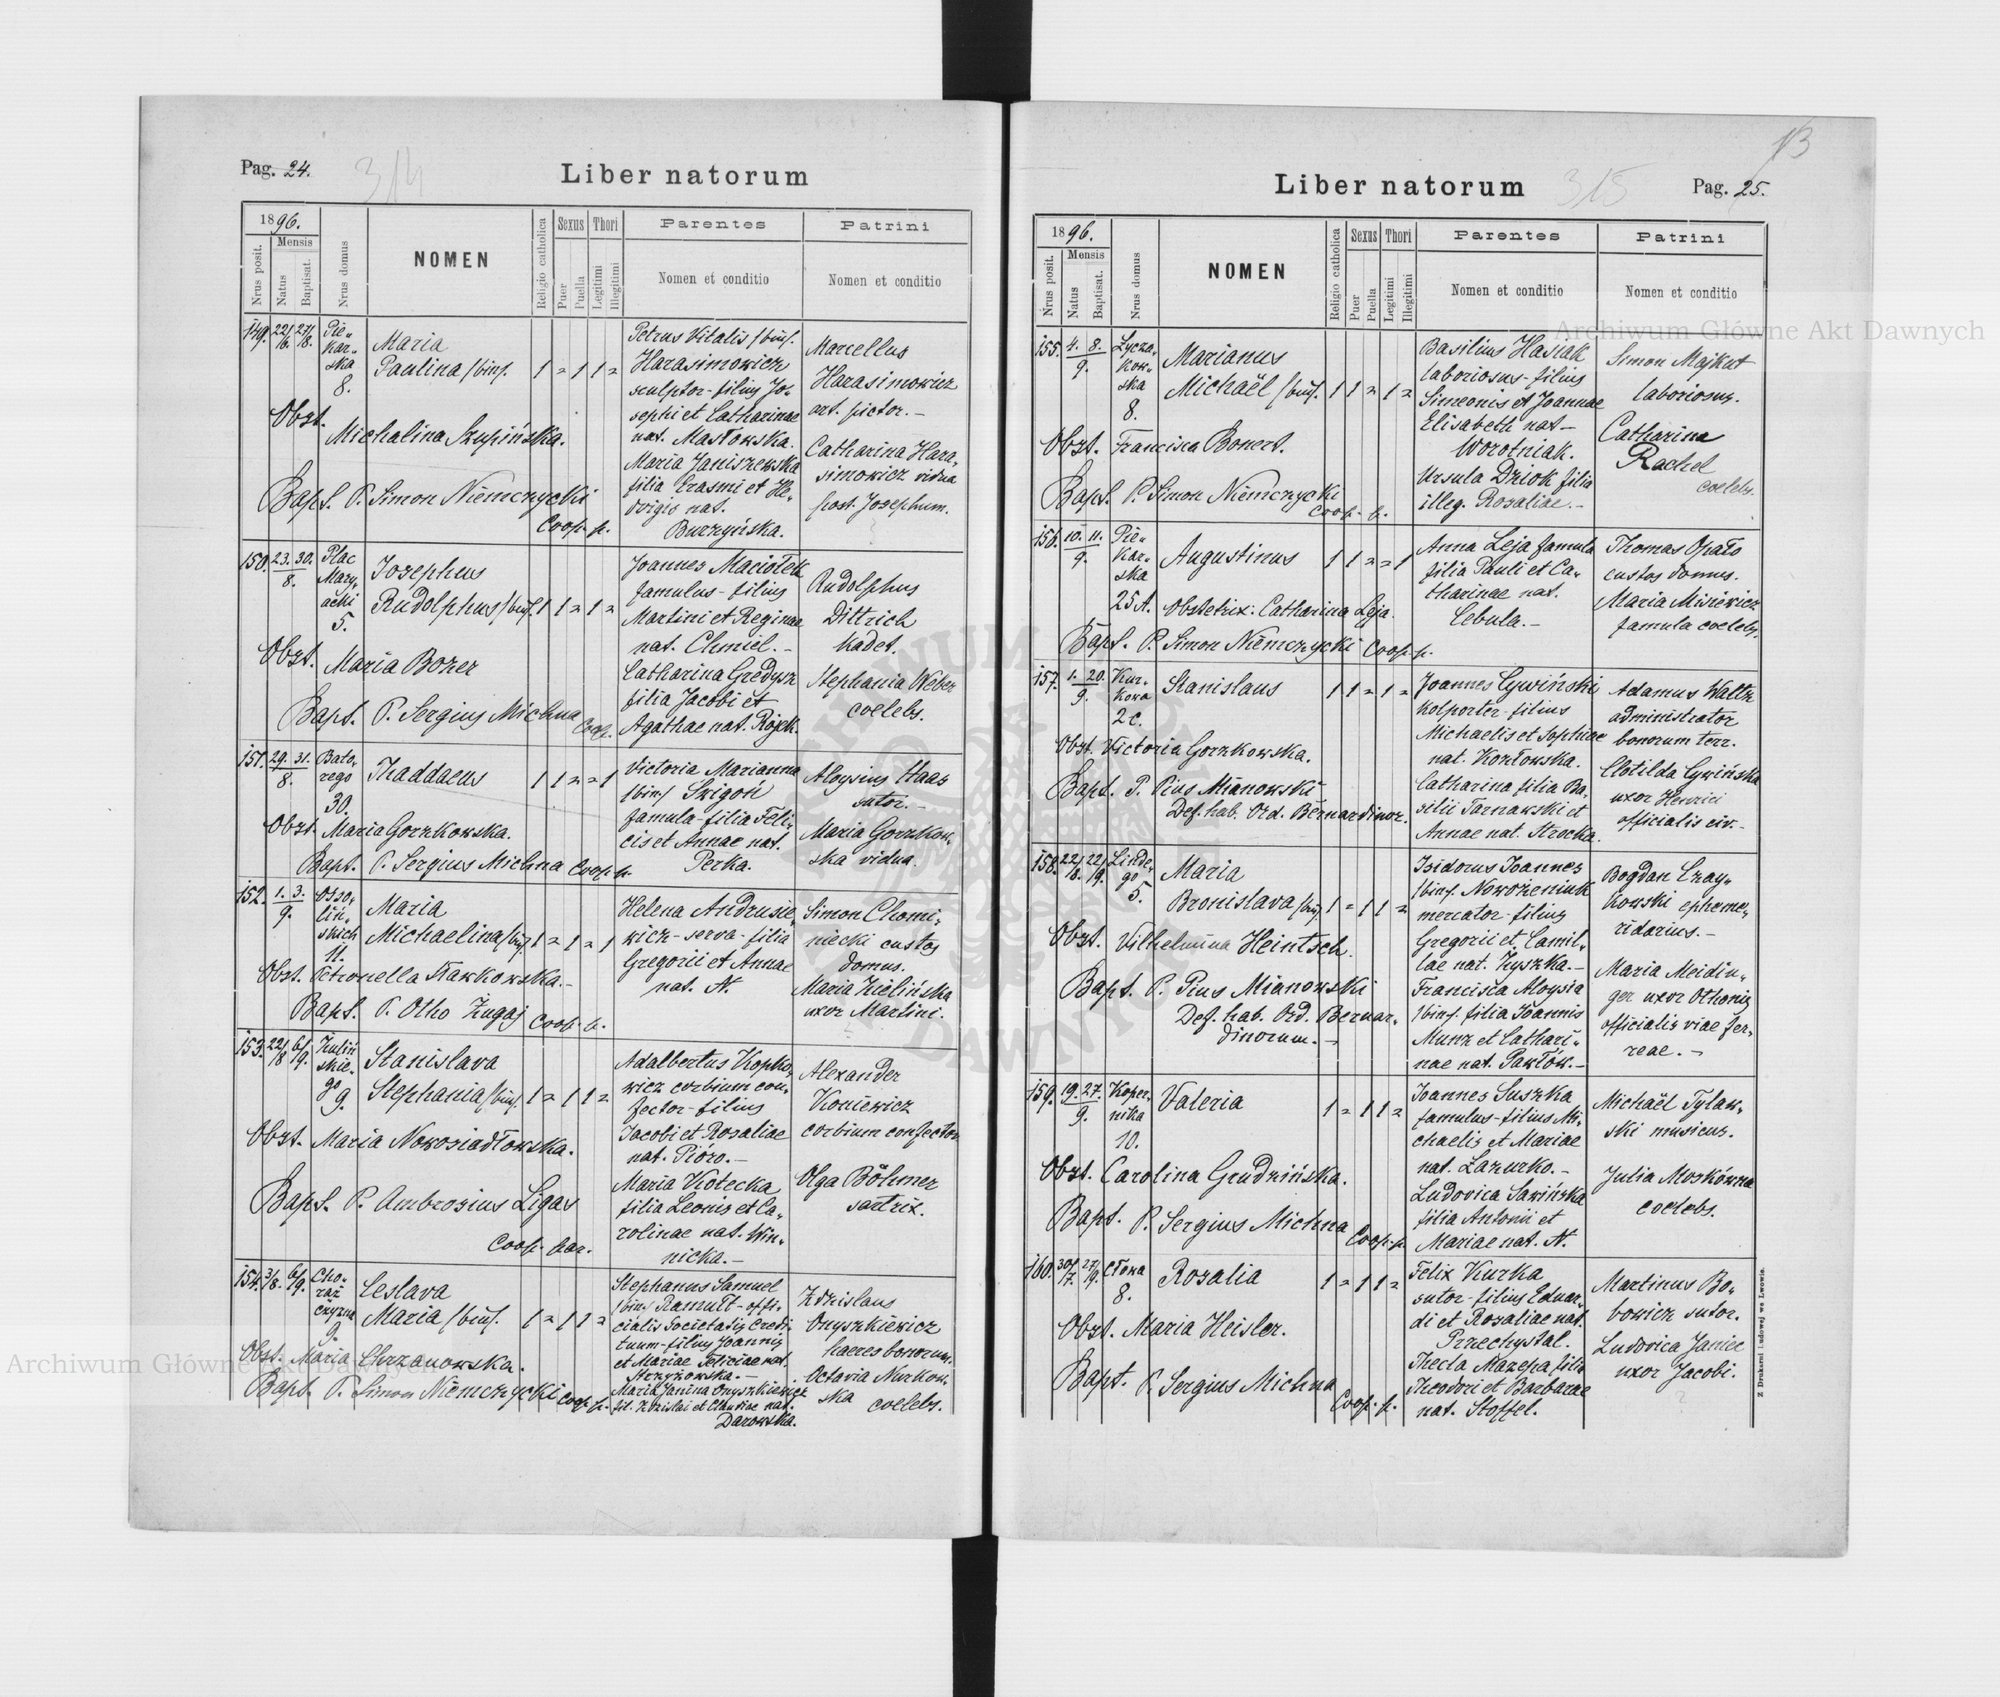 Pag. 24.
314
Liber natorum
1896.
Nrus posit.
Mensis
Natus
Baptisat.
Nrus domus
NOMEN
Religio catholica
Sexus
Puer
Puella
Thori
Legitimi
Illegitimi
Parentes
Nomen et conditio
Patrini
Nomen et conditio
149. 22/6. 27/8. Pie-
kar-
ska
8.
Maria
Paulina /bin/. 1 = 1 1 =
Obst.
Michalina Szupińska.
Bapt. P. Simon Niemczycki
Coop. p.
Petrus Vitalis /bin/.
Harasimowicz
sculptor - filius Jo-
sephi et Catharinae
nat. Masłowska.
Maria Janiszewska
filia Erasmi et He-
dvigis nat.
Burzyńska.
Marcellus
Harasimowicz
art. pictor. -
Catharina Hara-
simowicz vidua
post. Josephum.
150. 23. 30.
8.
Plac
Mary-
acki
5.
Josephus
Rudolphus /bin/. 1 1 = 1 =
Obst. Maria Bozer
Bapt. P. Sergius Michna
Coop.
Joannes Maciołek
famulus - filius
Martini et Reginae
nat. Chmiel. -
Catharina Gredysz
filia Jacobi et
Agathae nat. Rojek.
Rudolphus
Dittrich
kadet.
Stephania Weber
coelebs.
151. 29. 31.
8.
Bato-
rego
30.
Thaddaeus 1 1 = = 1
Obst. Maria Gorzkowska.
Bapt. P. Sergius Michna Coop. p.
Victoria Marianna
/bin/ Świgoń
famula - filia Feli-
cis et Annae nat.
Perka.
Aloysius Haas
sutor. -
Maria Gorzkow-
ska vidua.
152. 1. 3.
9.
Osso-
liń-
skich
11.
Maria
Michaelina /bin/ 1 = 1 = 1
Obst. Petronella Sławkowska. -
Bapt. P. Otho Zugaj Coop. p.
Helena Andrusie-
wicz - serva - filia
Gregorii et Annae
nat. N.
Simon Chomi-
niecki custos
domus.
Maria Zielińska
uxor Martini.
153. 22/8 6/9. Zuliń
skie-
go
9.
Stanislava
Stephania /bin/. 1 = 1 1 =
Obst. Maria Nowosiadłowska.
Bapt. P. Ambrosius Ligas
Coop. par.
Adalbertus Kopko-
wicz corbium con-
fector - filius
Jacobi et Rosaliae
nat. Pióro. -
Maria Kotecka
filia Leonis et Ca-
rolinae nat. Win-
nicka. -
Alexander
Koniewicz
corbium confector
Olga Böhmer
sartrix.
154. 3/8. 6/9. Cho-
rąż
czyzna
9.
Ceslava
Maria /bin/. 1 = 1 1 =
Obst. Maria Chrzanowska.
Bapt. P. Simon Niemczycki Coop. p.
Stephanus Samuel
/bin/ Ramułt - offi-
cialis Societatis Credi-
tuum - filius Joannis
et Mariae Feliciae nat.
Strzyżowska. -
Maria Janina Onyszkiewicz
fil. Zdzislai et Claudiae nat.
Darowska.
Zdzislaus
Onyszkiewicz
haeres bonorum.
Octavia Nurkow-
ska coelebs.
13
Liber natorum
315
Pag. 25.
1896.
Nrus posit.
Mensis
Natus
Baptisat.
Nrus domus
NOMEN
Religio catholica
Sexus
Puer
Puella
Thori
Legitimi
Illegitimi
Parentes
Nomen et conditio
Patrini
Nomen et conditio
155. 4. 8.
9.
Łycza-
kow-
ska
8.
Marianus
Michaël /bin/. 1 1 = 1 =
Obst. Francisca Bonert.
Bapt. P. Simon Niemczycki
Coop. p.
Basilius Hasiak
laboriosus - filius
Simeonis et Joannae
Elisabeth nat -
Worotniak.
Ursula Dziok filia
illeg. Rosaliae. -
Simon Majkut
laboriosus.
Catharina
Rachel
coelebs.
156. 10. 11.
9.
Pie-
kar-
ska
25 A.
Augustinus 1 1 = = 1
Obstetrix: Catharina Leja.
Bapt. P. Simon Niemczycki Coop. p.
Anna Leja famula
filia Pauli et Ca-
tharinae nat.
Cebula. -
Thomas Opało
custos domus.
Maria Misiewicz
famula coelebs.
157. 1. 20.
9.
Kur-
kowa
2 c.
Stanislaus 1 1 = 1 =
Obst. Victoria Gorzkowska.
Bapt. P. Pius Mianowski
Def. hab. Ord. Bernardinor.
Joannes Cywiński
kolporter - filius
Michaelis et Sophiae
nat. Kozłowska.
Catharina filia Ba-
silii Tarnawski et
Annae nat. Strocka.
Adamus Waltz
administrator
bonorum terr.
Clotilda Cywińska
uxor Henrici
officialis civ. -
158. 22/8. 22/9. Linde-
go
5.
Maria
Bronislava /bin/. 1 = 1 1 =
Obst. Vilhelmina Heintsch.
Bapt. P. Pius Mianowski
Def. hab. Ord. Bernar-
dinorum. -
Isidorus Joannes
/bin/. Nowożeniuk
mercator - filius
Gregorii et Camil-
lae nat. Zyszka. -
Francisca Aloysia
/bin/. filia Joannis
Munz et Cathari-
nae nat. Pawłów. -
Bogdan Czay-
kowski epheme-
ridarius. -
Maria Meidin-
ger uxor Othonis
officialis viae fer-
reae. -
159. 19. 27.
9.
Koper-
nika
10.
Valeria 1 = 1 1 =
Obst. Carolina Grudzińska.
Bapt. P. Sergius Michna
Coop. p.
Joannes Suszka
famulus - filius Mi-
chaelis et Mariae
nat. Łazurko. -
Ludovica Sawińska
filia Antonii et
Mariae nat. N.
Michaël Tylaw-
ski musicus.
Julia Moskówna
coelebs.
160. 30/7. 27/9. Cłowa
8.
Rosalia 1 = 1 1 =
Obst. Maria Heisler.
Bapt. P. Sergius Michna
Coop. p.
Felix Kurka
sutor - filius Eduar-
di et Rosaliae nat.
Przechystal.
Thecla Mazepa filia
Theodori et Barbarae
nat. Stoffel.
Martinus Bo-
bowicz sutor.
Ludovica Janiec
uxor Jacobi.
Z Drukarni Ludowej we Lwowie.
Archiwum Główne Akt Dawnych
Archiwum Główne Akt Dawnych